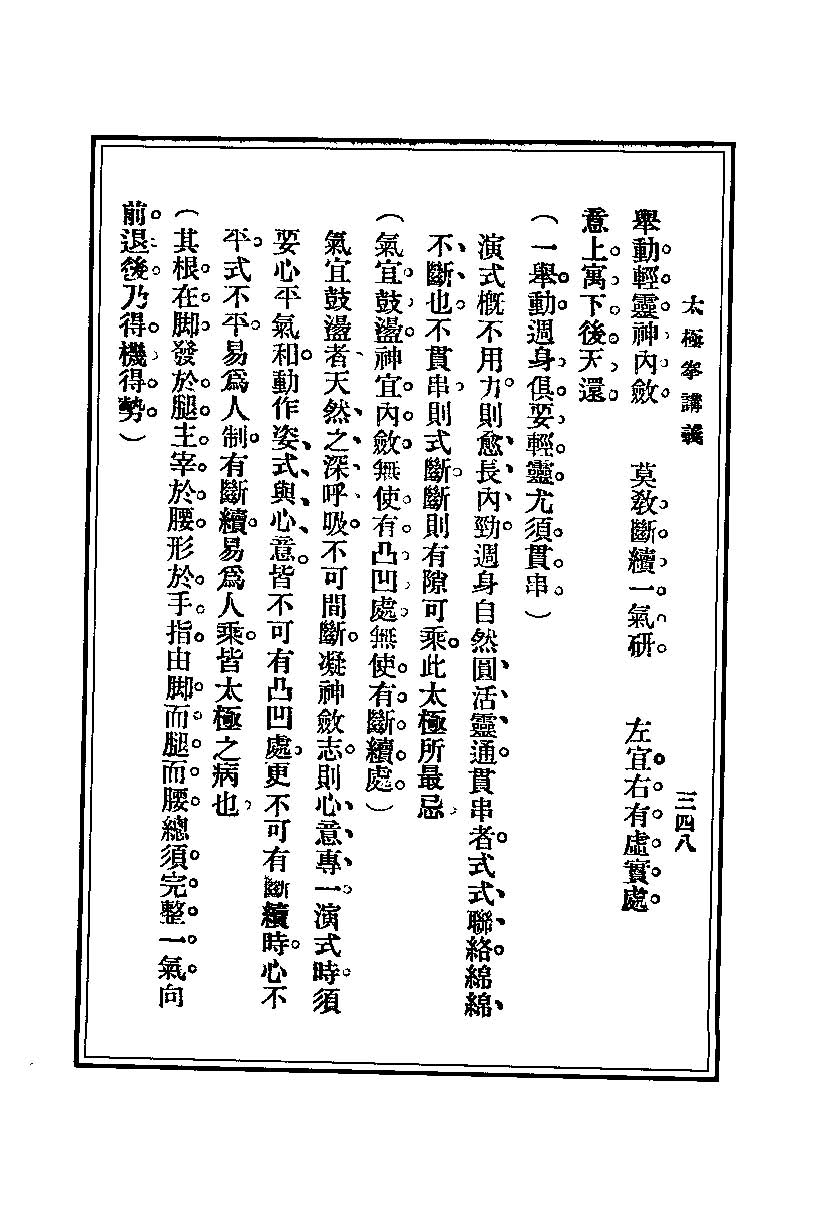 太極拳講義
三四八
舉動輕靈神內斂　莫教斷續一氣研　左宜右有虛實處
意上寓下後天還
（一舉動週身俱要輕靈尤須貫串）
演式槪不用力則愈長內勁週身自然圓活靈通貫串者式式聯絡綿綿
不斷也不貫串則式斷斷則有隙可乘此太極所最忌
（氣宜鼓盪神宜內斂無使有凸凹處無使有斷續處）
氣宜鼓盪者天然之深呼吸不可間斷凝神斂志則心意專一演式時須
要心平氣和動作姿式與心意皆不可有凸凹處更不可有斷續時心不
平式不平易爲人制有斷續易爲人乘皆太極之病也
（其根在脚發於腿主宰於腰形於手指由脚而腿而腰總須完整一氣向
前退後乃得機得勢）